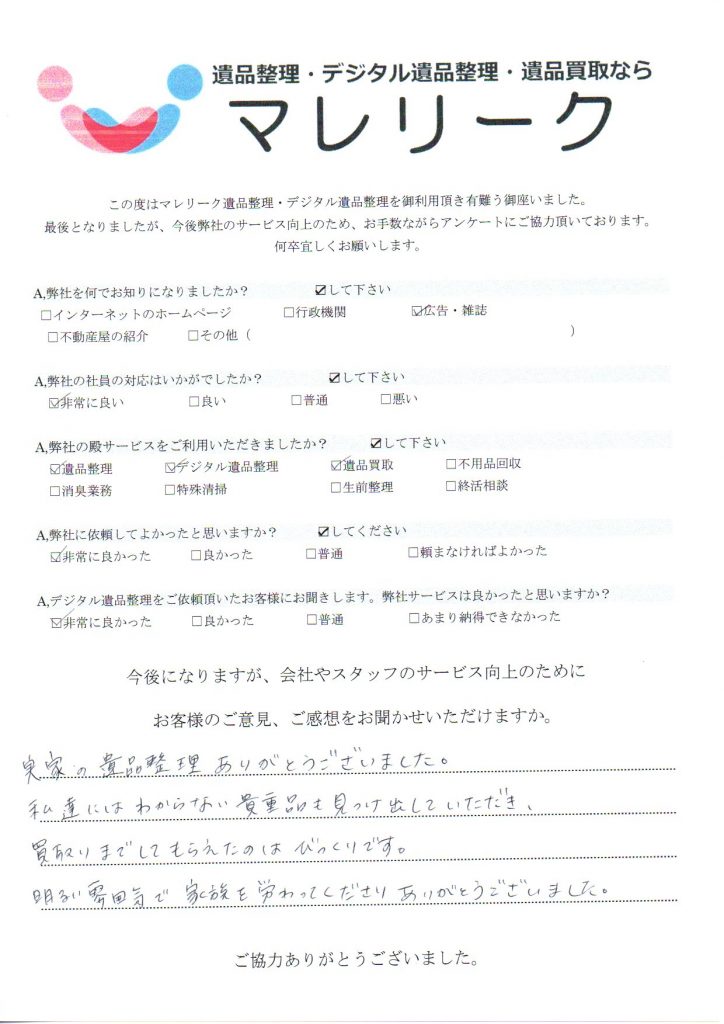 遺品整理・デジタル遺品整理・遺品買取なら
マレリーク
この度はマレリーク遺品整理・デジタル遺品整理を御利用頂き有難う御座いました。
最後となりましたが、今後弊社のサービス向上のため、お手数ながらアンケートにご協力頂いております。
何卒宜しくお願いします。
A,弊社を何でお知りになりましたか？ ☑して下さい
☐インターネットのホームページ ☐行政機関 ☑広告・雑誌
☐不動産屋の紹介 ☐その他（ ）
A,弊社の社員の対応はいかがでしたか？ ☑して下さい
☑非常に良い ☐良い ☐普通 ☐悪い
A,弊社の殿サービスをご利用いただきましたか？ ☑して下さい
☑遺品整理 ☑デジタル遺品整理 ☑遺品買取 ☐不用品回収
☐消臭業務 ☐特殊清掃 ☐生前整理 ☐終活相談
A,弊社に依頼してよかったと思いますか？ ☑してください
☑非常に良かった ☐良かった ☐普通 ☐頼まなければよかった
A,デジタル遺品整理をご依頼頂いたお客様にお聞きします。弊社サービスは良かったと思いますか？
☑非常に良かった ☐良かった ☐普通 ☐あまり納得できなかった
今後になりますが、会社やスタッフのサービス向上のために
お客様のご意見、ご感想をお聞かせいただけますか。
実家の遺品整理ありがとうございました。
私達にはわからない貴重品も見つけ出していただき、
買取りまでしてもらえたのはびっくりです。
明るい雰囲気で家族を労わってくださりありがとうございました。
ご協力ありがとうございました。